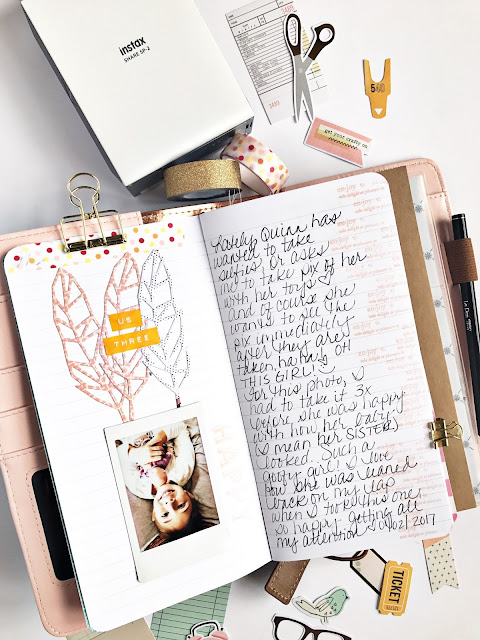 instax
SHARE SP-2
540
get your crafty on
enjoy
US
THREE
Lately Quinn has
wanted to take
selfies or asks
me to take pix of her
with her toys
and of course she
wants to see the
pix immediately
after they are
taken, hahaha oh
THIS GIRL!
For this photo, I
had to take it 3x
before she was happy
with how her baby
(I mean her SISTER)
looked. Such a
goofy girl! I love
how she was leaned
back on my lap
when I took this one,
so happy getting all
my attention 01/02/2017
HAPPY
TICKET